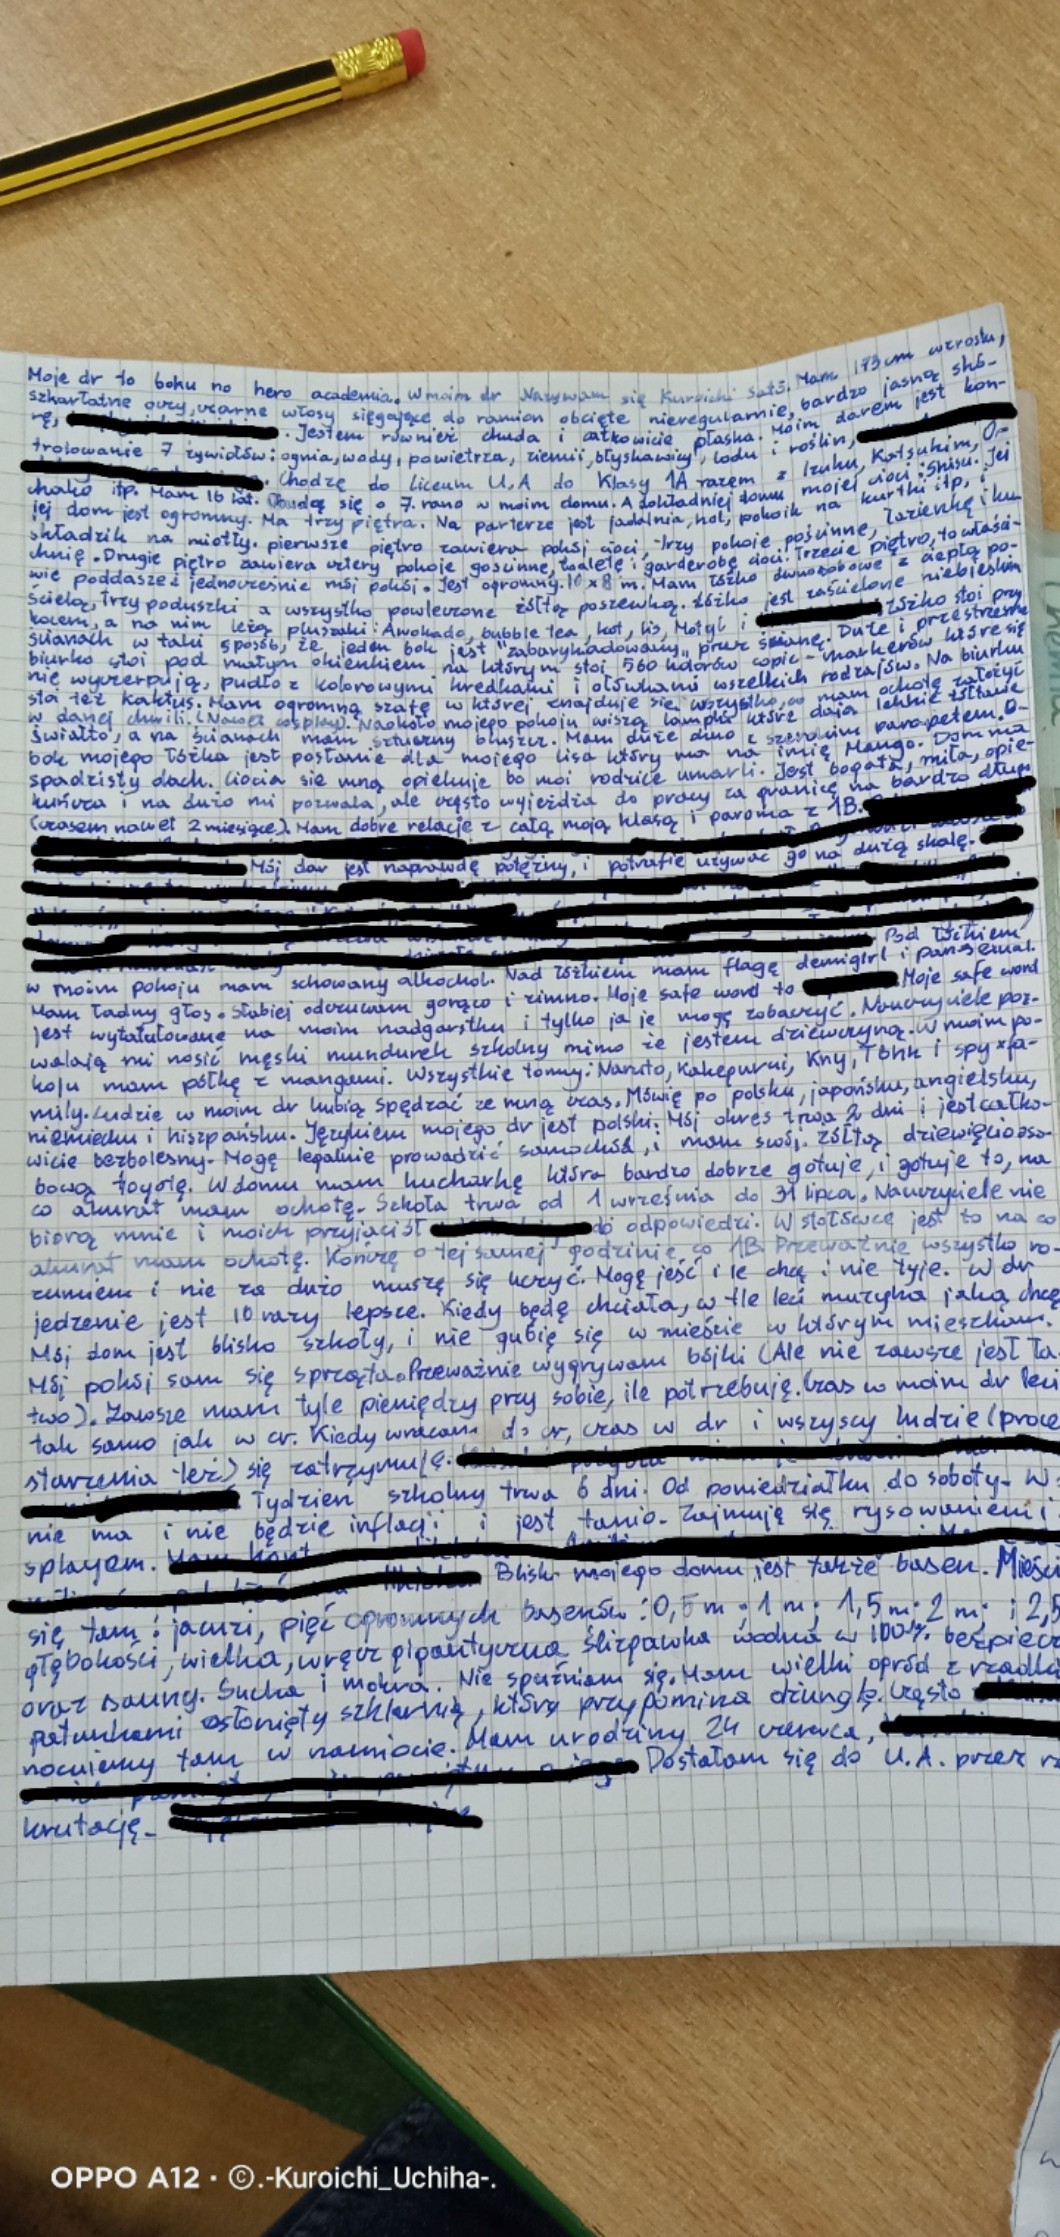 Moje dr to boku no hero academia. W moim dr Nazywam się Kuroichi Satō. Mam 173 cm wzrostu,
szkarłatne oczy, czarne włosy sięgające do ramion obcięte nieregularnie, bardzo jasną skó-
rę, . Jestem również chuda i całkowicie płaska. Moim darem jest kon-
trolowanie 7 żywiołów: ognia, wody, powietrza, ziemii, błyskawicy, lodu i roślin,
. Chodzę do liceum U.A do klasy 1A razem z Izuku, Katsukim, O-
chako itp. Mam 16 lat. Budzę się o 7. rano w moim domu. A dokładniej domu mojej cioci: Shisu. Jej
jej dom jest ogromny. Ma trzy piętra. Na parterze jest jadalnia, hol, pokoik na kurtki itp, i
składzik na miotły. pierwsze piętro zawiera pokój cioci, trzy pokoje gościnne, łazienkę i ku
chnię. Drugie piętro zawiera cztery pokoje gościnne, toaletę i garderobę cioci. Trzecie piętro, to właści-
wie poddasze i jednocześnie mój pokój. Jest ogromny. 10 x 8 m. Mam łóżko dwuosobowe z ciepłą po-
ścielą, trzy poduszki a wszystko powleczone żółtą poszewką. Łóżko jest zaścielone niebieskim
kocem, a na nim leżą pluszaki: Awokado, bubble tea, kot, lis, Motyl i łóżko stoi przy
ścianach w taki sposób, że jeden bok jest "zabarykadowany" przez ścianę. Duże i przestrzenne
biurko stoi pod małym okienkiem na którym stoi 560 kolorów copic-markerów które się
nie wyczerpują, pudło z kolorowymi kredkami i ołówkami wszelkich rodzajów. Na biurku
stoi też kaktus. Mam ogromną szafę w której znajduje się wszystko, co mam ochotę założyć
w danej chwili. (Nawet cosplay). Naokoło mojego pokoju wiszą lampki które dają lekkie żółtawe
światło, a na ścianach mam sztuczny bluszcz. Mam duże okno z szerokim parapetem. O-
bok mojego łóżka jest posłanie dla mojego lisa który ma na imię Mango. Dom ma
spadzisty dach. Ciocia się mną opiekuje bo moi rodzice umarli. Jest bogata, miła, opie-
kuńcza i na dużo mi pozwala, ale często wyjeżdża do pracy za granicę na bardzo długo
(czasem nawet 2 miesiące). Mam dobre relacje z całą moją klasą i paroma z 1B.
Mój dar jest naprawdę potężny, i potrafię używać go na dużą skalę.
Pod łóżkiem
w moim pokoju mam schowany alkochol. Nad łóżkiem mam flagę demigirl i pansexual.
Mam ładny głos. Słabiej odczuwam gorąco i zimno. Moje safe word to Moje safe word
jest wytatuowane na moim nadgarstku i tylko ja je mogę zobaczyć. Nauczyciele poz-
walają mi nosić męski mundurek szkolny mimo że jestem dziewczyną. W moim po-
koju mam półkę z mangami. Wszystkie tomy: Naruto, Kakegurui, Kny, Tbhk i spyxfa-
mily. Ludzie w moim dr lubią spędzać ze mną czas. Mówię po polsku, japońsku, angielsku,
niemiecku i hiszpańsku. Językiem mojego dr jest polski. Mój okres trwa 2 dni i jest całko-
wicie bezbolesny. Mogę legalnie prowadzić samochód, i mam swój. Żółtą dziewięcioso-
bową toyotę. W domu mam kucharkę która bardzo dobrze gotuje, i gotuje to, na
co akurat mam ochotę. Szkoła trwa od 1 września do 31 lipca. Nauczyciele nie
biorą mnie i moich przyjaciół do odpowiedzi. W stołówce jest to na co
akurat mam ochotę. Kończę o tej samej godzinie co 1B. Przeważnie wszystko ro-
zumiem i nie za dużo muszę się uczyć. Mogę jeść ile chcę i nie tyje. W dr
jedzenie jest 10 razy lepsze. Kiedy będę chciała, w tle leci muzyka jaką chcę
Mój dom jest blisko szkoły, i nie gubię się w mieście w którym mieszkam.
Mój pokój sam się sprząta. Przeważnie wygrywam bójki (Ale nie zawsze jest ła
two). Zawsze mam tyle pieniędzy przy sobie, ile potrzebuję. Czas w moim dr leci
tak samo jak w cr. Kiedy wracam do cr, czas w dr i wszyscy ludzie (proce
starzenia też) się zatrzymuje.
Tydzień szkolny trwa 6 dni. Od poniedziałku do soboty. W
nie ma i nie będzie inflacji i jest tanio. Zajmuję się rysowaniem i
splayem.
Blisko mojego domu jest także basen. Mieści
się tam: jacuzi, pięć ogromnych basenów: 0,5 m; 1 m; 1,5 m; 2 m; i 2,5
głębokości, wielka, wręcz gigantyczna ślizgawka wodna w 100% bezpiecz
oraz sauny. Sucha i mokra. Nie spóźniam się. Mam wielki ogród z rzadki
gatunkami osłonięty szklarnią, który przypomina dżunglę. Często
nocujemy tam w namiocie. Mam urodziny 24 czerwca,
Dostałam się do U.A. przez r
krutację.
OPPO A12 · ©.-Kuroichi_Uchiha-.